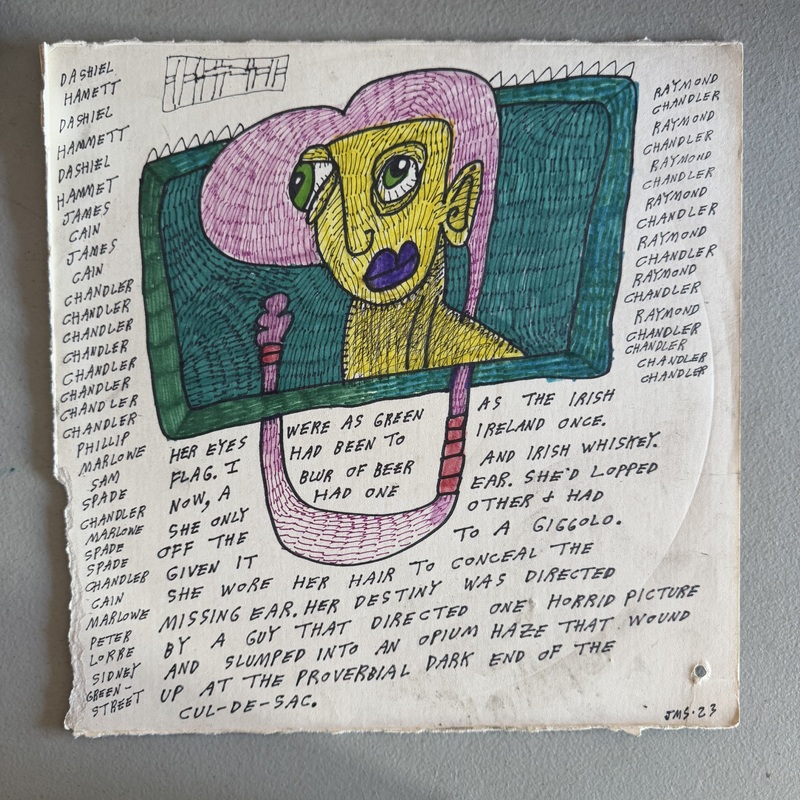 DASHIEL
HAMETT
DASHIEL
HAMMETT
DASHIEL
HAMMET
JAMES
CAIN
JAMES
CAIN
CHANDLER
CHANDLER
CHANDLER
CHANDLER
CHANDLER
CHANDLER
CHANDLER
CHANDLER
PHILLIP
MARLOWE
SAM
SPADE
CHANDLER
MARLOWE
SPADE
SPADE
CHANDLER
CAIN
MARLOWE
PETER
LORRE
SIDNEY
GREEN-
STREET
RAYMOND
CHANDLER
RAYMOND
CHANDLER
RAYMOND
CHANDLER
RAYMOND
CHANDLER
RAYMOND
CHANDLER
RAYMOND
CHANDLER
RAYMOND
CHANDLER
CHANDLER
CHANDLER
CHANDLER
HER EYES WERE AS GREEN AS THE IRISH
FLAG. I HAD BEEN TO IRELAND ONCE.
NOW, A BLUR OF BEER AND IRISH WHISKEY.
SHE ONLY HAD ONE EAR. SHE'D LOPPED
OFF THE OTHER & HAD
GIVEN IT TO A GIGGOLO.
SHE WORE HER HAIR TO CONCEAL THE
MISSING EAR. HER DESTINY WAS DIRECTED
BY A GUY THAT DIRECTED ONE HORRID PICTURE
AND SLUMPED INTO AN OPIUM HAZE THAT WOUND
UP AT THE PROVERBIAL DARK END OF THE
CUL-DE-SAC.
JMS·23